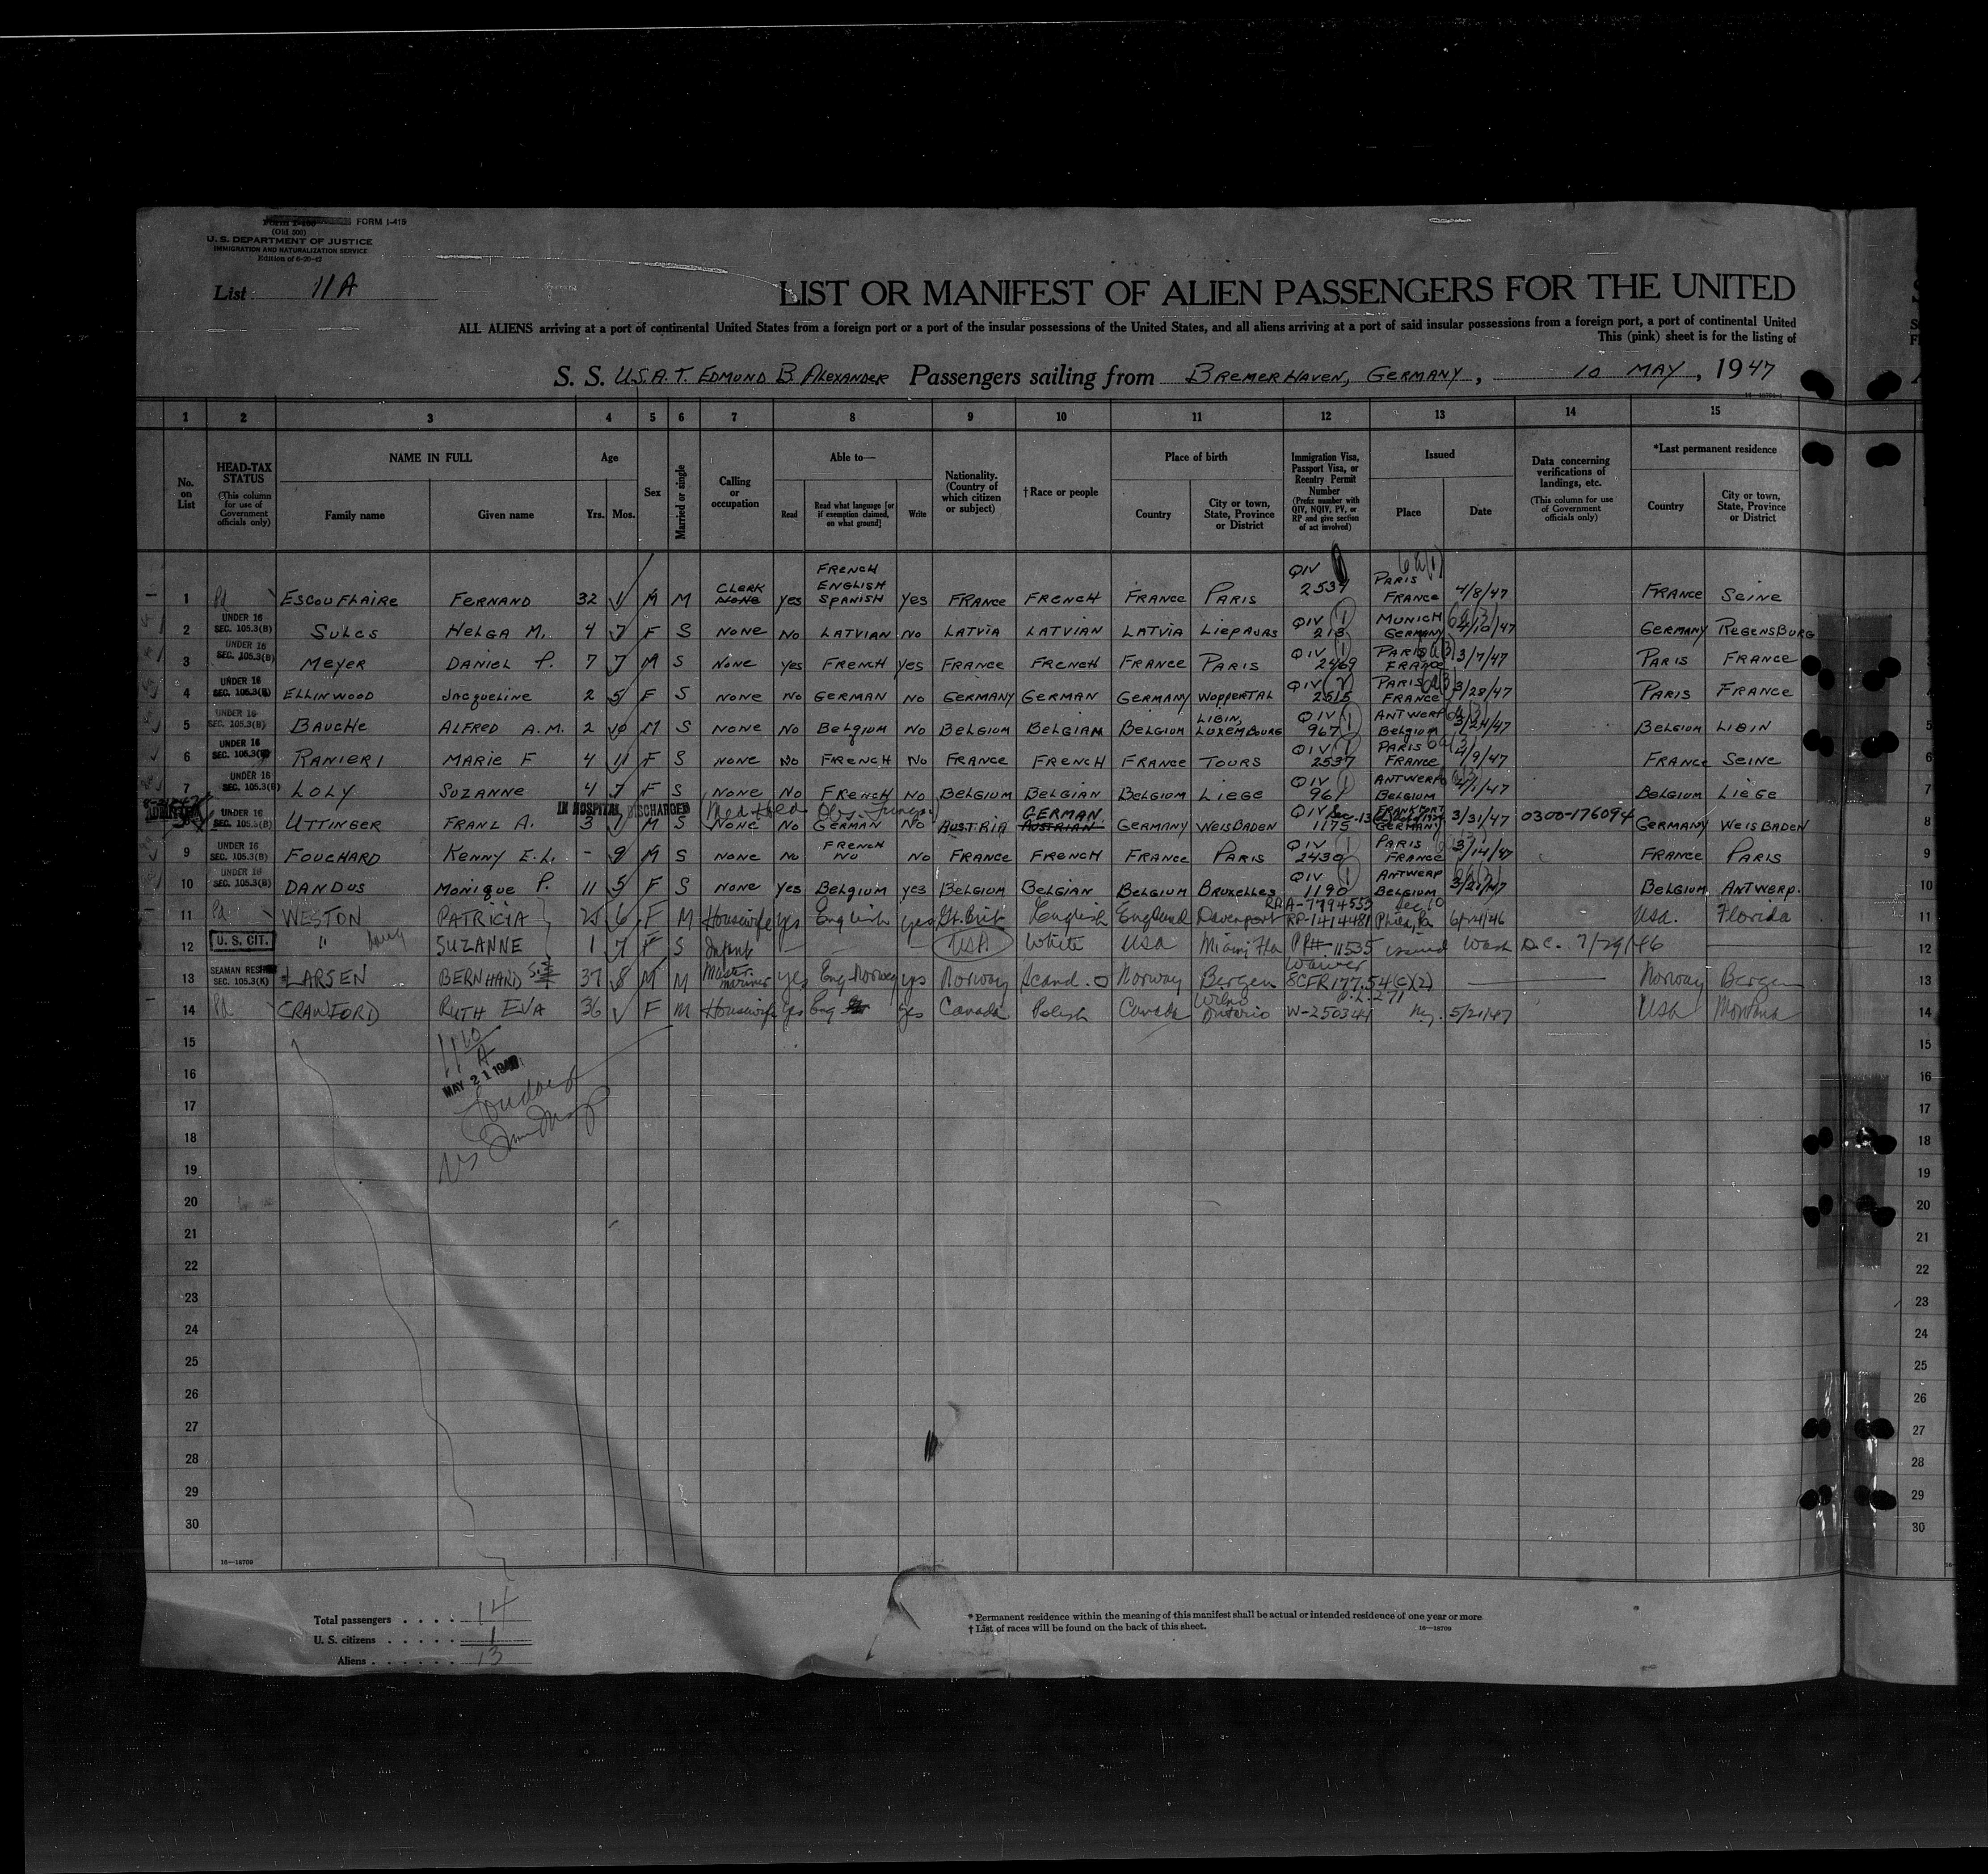 Form I-400 FORM I-415
(Old 500)
U. S. DEPARTMENT OF JUSTICE
IMMIGRATION AND NATURALIZATION SERVICE
Edition of 6-20-42
List 11A
LIST OR MANIFEST OF ALIEN PASSENGERS FOR THE UNITED
ALL ALIENS arriving at a port of continental United States from a foreign port or a port of the insular possessions of the United States, and all aliens arriving at a port of said insular possessions from a foreign port, a port of continental United
This (pink) sheet is for the listing of
S. S. U.S.A.T. EDMUND B. ALEXANDER Passengers sailing from BREMERHAVEN, GERMANY, 10 MAY, 1947
1 2 3 4 5 6 7 8 9 10 11 12 13 14 15
No. on List
HEAD-TAX STATUS (This column for use of Government officials only)
NAME IN FULL Family name Given name
Age Yrs. Mos.
Sex
Married or single
Calling or occupation
Able to— Read Read what language [or if exemption claimed, on what ground] Write
Nationality. (Country of which citizen or subject)
†Race or people
Place of birth Country City or town, State, Province or District
Immigration Visa, Passport Visa, or Reentry Permit Number (Prefix number with QIV, NQIV, PV, or RP and give section of act involved)
Issued Place Date
Data concerning verifications of landings, etc. (This column for use of Government officials only)
*Last permanent residence Country City or town, State, Province or District
1 Pd ESCOUFLAIRE FERNAND 32 M M CLERK NONE yes FRENCH ENGLISH SPANISH yes FRANCE FRENCH FRANCE PARIS QIV 2534 PARIS FRANCE 4/8/47 FRANCE SEINE
2 UNDER 16 SEC. 105.3(B) SULCS HELGA M. 4 7 F S NONE NO LATVIAN NO LATVIA LATVIAN LATVIA LIEPAJAS QIV 213 MUNICH GERMANY 4/10/47 GERMANY REGENSBURG
3 UNDER 16 SEC. 105.3(B) MEYER DANIEL P. 7 7 M S NONE yes FRENCH yes FRANCE FRENCH FRANCE PARIS QIV 2469 PARIS FRANCE 3/7/47 PARIS FRANCE
4 UNDER 16 SEC. 105.3(B) ELLINWOOD Jacqueline 2 5 F S NONE NO GERMAN NO GERMANY GERMAN GERMANY WOPPERTAL QIV 2515 PARIS FRANCE 3/28/47 PARIS FRANCE
5 UNDER 16 SEC. 105.3(B) BAUCHE ALFRED A.M. 2 10 M S NONE NO Belgium NO BELGIUM BELGIAN BELGIUM LIBIN, LUXEMBOURG QIV 967 ANTWERP Belgium 3/24/47 BELGIUM LIBIN
6 UNDER 16 SEC. 105.3(B) RANIERI MARIE F 4 11 F S NONE NO FRENCH NO FRANCE FRENCH FRANCE TOURS QIV 2537 PARIS FRANCE 4/9/47 FRANCE SEINE
7 UNDER 16 SEC. 105.3(B) LOLY SUZANNE 4 7 F S NONE NO FRENCH NO BELGIUM BELGIAN BELGIUM LIEGE QIV 961 ANTWERP BELGIUM 4/1/47 BELGIUM LIEGE
IN HOSPITAL DISCHARGED
8 UNDER 16 SEC. 105.3(B) UTTINGER FRANZ A. 3 1 M S NONE NO GERMAN NO AUSTRIA GERMAN AUSTRIAN GERMANY WEISBADEN QIV 1175 FRANKFORT GERMANY 3/31/47 0300-176094 GERMANY WEISBADEN
9 UNDER 16 SEC. 105.3(B) FOUCHARD KENNY E.L. - 9 M S NONE NO FRENCH NO NO FRANCE FRENCH FRANCE PARIS QIV 2430 PARIS FRANCE 3/14/47 FRANCE PARIS
10 UNDER 16 SEC. 105.3(B) DANDUS MONIQUE P. 11 5 F S NONE yes BELGIUM yes BELGIUM BELGIAN BELGIUM BRUXELLES QIV 1190 ANTWERP BELGIUM 3/21/47 BELGIUM ANTWERP.
11 Pd WESTON PATRICIA 25 6 F M Housewife yes English yes Gt. Brit English England Davenport RP-1414481 Phila, Pa 6/24/46 USA. Florida
12 U. S. CIT. " SUZANNE 1 7 F S Infant USA White USA Miami Fla PP# 11535 issued Wash D.C. 7/29/46
13 SEAMAN RESHIP SEC. 105.3(K) LARSEN BERNHARD S. 37 8 M M Master mariner yes Eng. Norweg yes Norway Scand. Norway Bergen Waiver 8CFR177.54(c)(2) Norway Bergen
14 Pd CRAWFORD RUTH EVA 36 F M Housewife Yes Eng Yes Canada Polish Canada Ontario W-250344 Ny. 5/21/47 USA Montana
15
16 MAY 21 1947
17
18
19
20
21
22
23
24
25
26
27
28
29
30
16—18709
Total passengers . . . . 14
U. S. citizens . . . . . 1
Aliens . . . . . . 13
* Permanent residence within the meaning of this manifest shall be actual or intended residence of one year or more
† List of races will be found on the back of this sheet. 16—18709